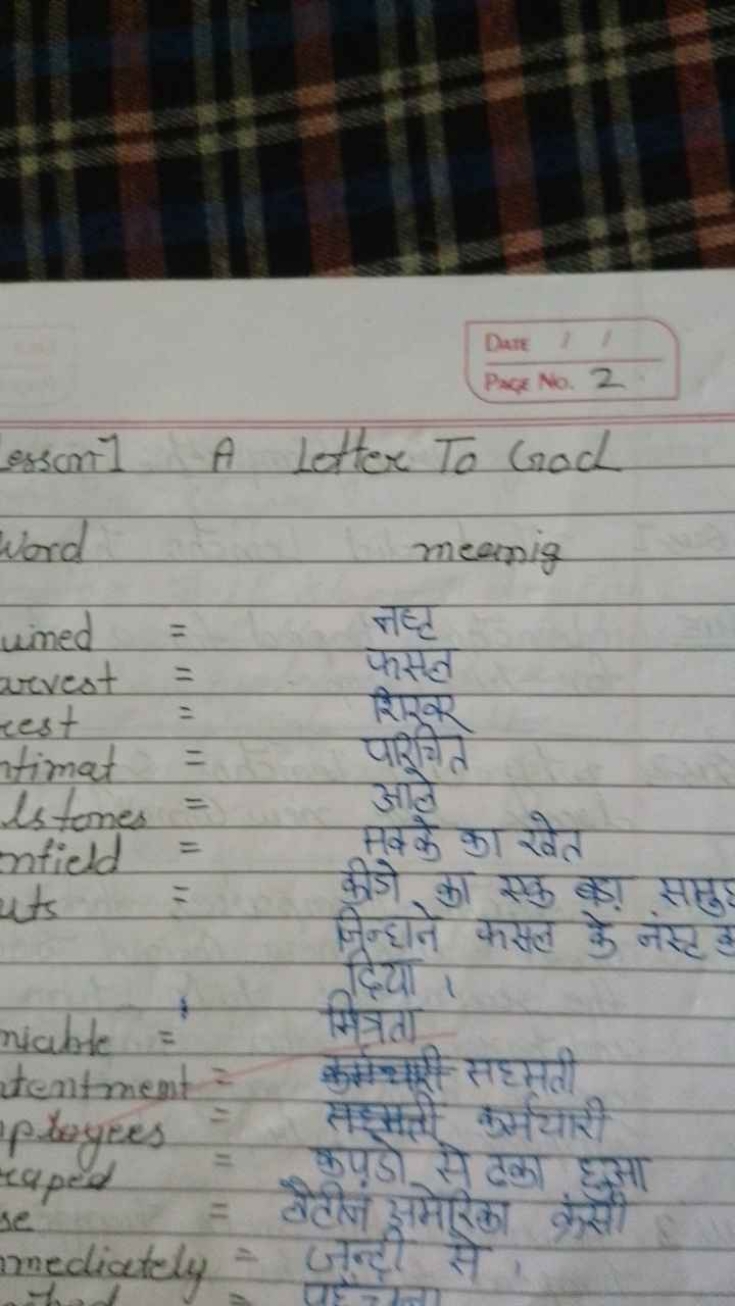 DATE / /
PAGE No. 2
Lesson-1 A Letter To God
Word meemig
uined = नष्ट
arvest = फसल
rest = शिखर
ntimat = परिचित
lstones = आले
nfield = मक्के का खेत
uts = कीडो का एक बड़ा समुह
जिन्होने फसल के नस्ट क
दिया ।
miable = मित्रता
ntentment = सहमती
ployees = कर्मचारी
raped = कपड़ो से ढका हुआ
se = लैटीन अमेरिका
mmediately = जल्दी से ।